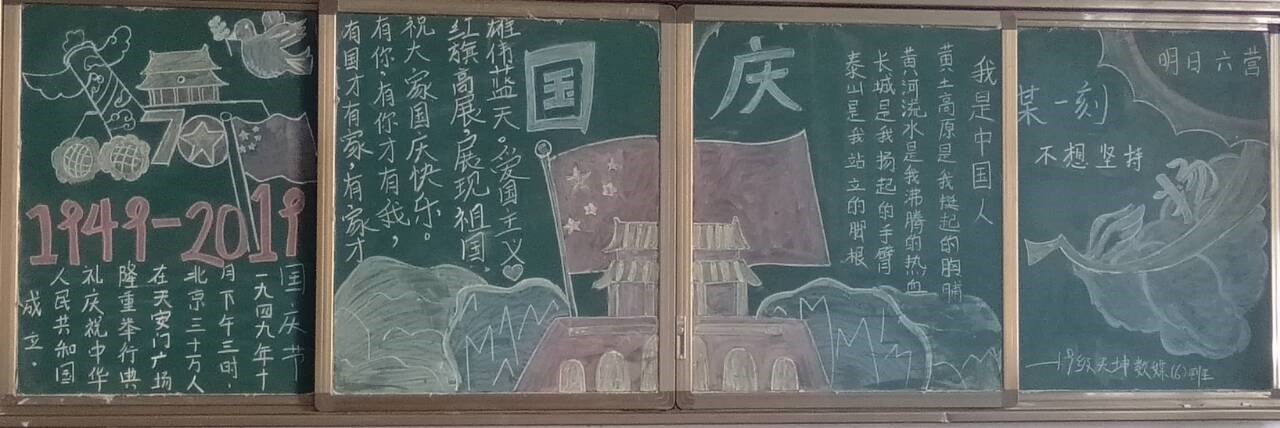 70
1949-2019
国庆节
一九四九年十
月下午三时，
北京三十万人
在天安门广场
隆重举行典
礼庆祝中华
人民共和国
成立.
有国才有家，有家才
有你，有你才有我，
祝大家国庆快乐。
红旗高展，展现祖国，
雄伟蓝天。爱国主义
国
庆
我是中国人
黄土高原是我挺起的胸脯
黄河流水是我沸腾的热血
长城是我扬起的手臂
泰山是我站立的脚根
明日六营
某一刻
不想坚持
——19级天坤教练(6)班